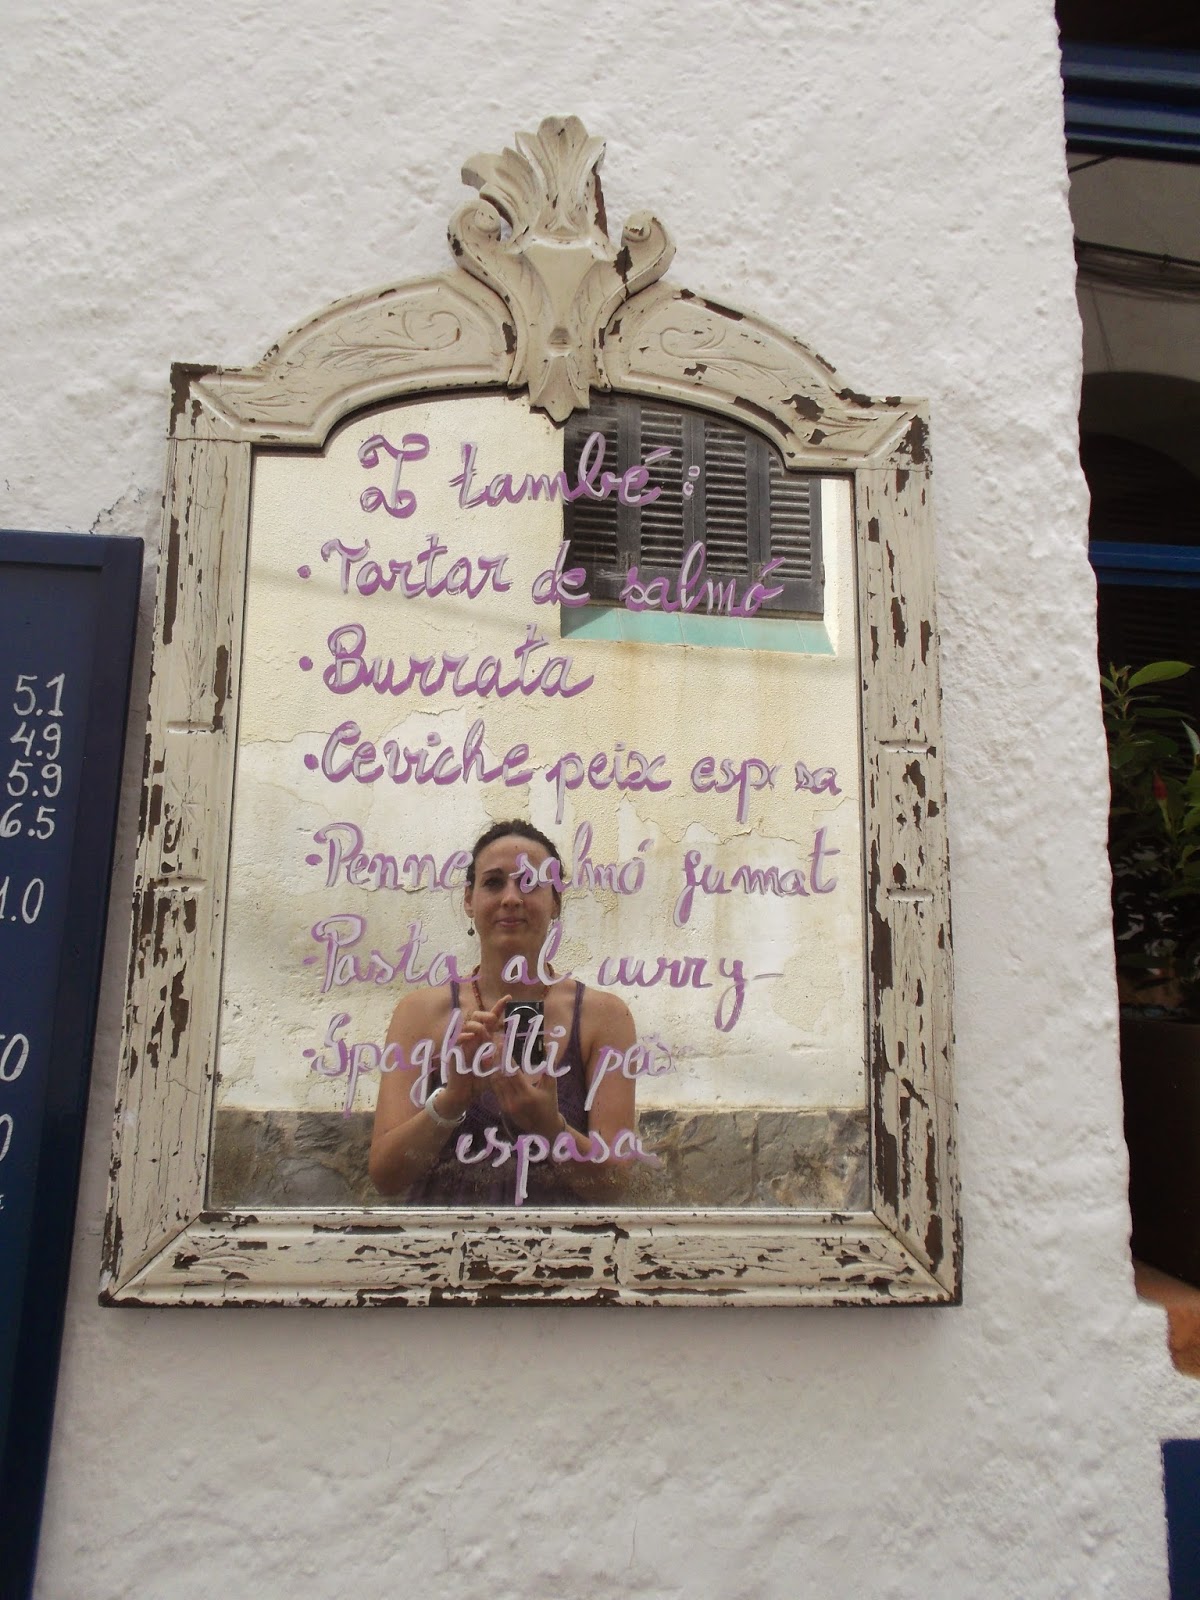 I també:
· Tartar de salmó
· Burrata
· Ceviche peix esp sa
· Penne salmó fumat
· Pasta al curry
· Spaghetti peix
espasa
5.1
4.9
5.9
6.5
1.0